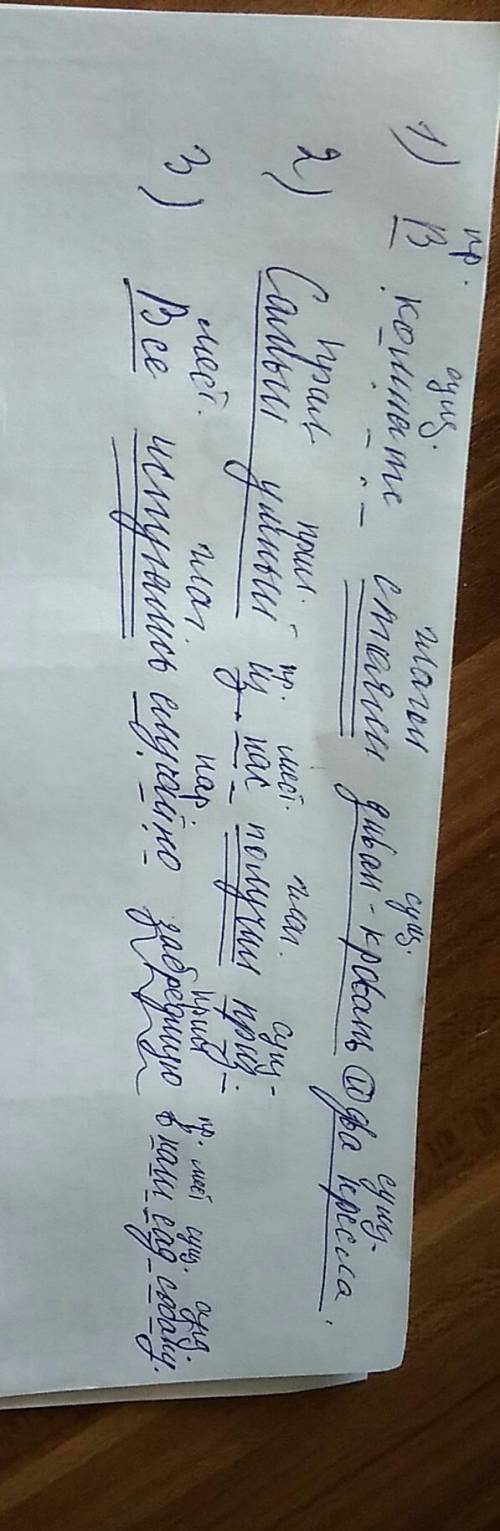 пр. сущ. глагол сущ. сущ.
1) В комнате стояли диван - кровать и два кресла.
прил прил. пр. мест. глаг. сущ.
2) Самый умный из нас получил приз.
мест. глаг. нар прич пр. мест сущ. сущ.
3) Все испугались случайно забредшую в наш сад собаку.